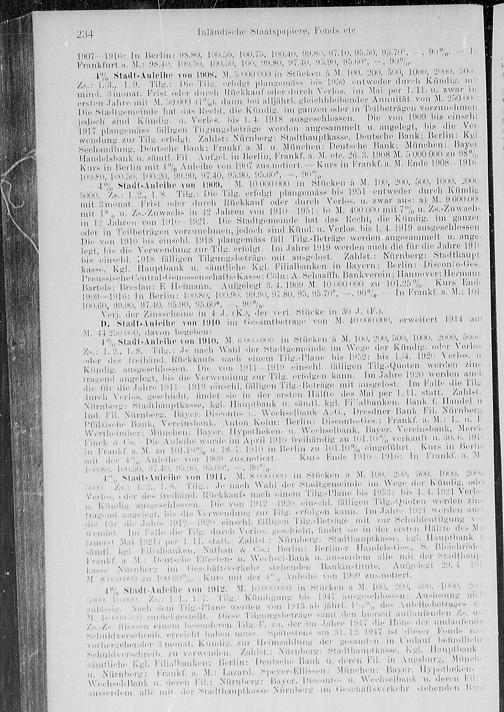 234 Inländische Staatspapiere, Fonds etc.
1907—1916: In Berlin: 98.80, 100.50, 100.75, 100.40, 99.80, 97.10, 95.50, 95.70*, —, 90%. —
Frankfurt a. M.: 98.40, 100.50, 100.50, 100, 99.80, 97.40, 95.90, 95.60*, —, 90%.
4% Stadt-Anleihe von 1908. M. 5 000 000 in Stücken à M. 100, 200, 500, 1000, 2000,
Zs.: 1./3., 1./9. Tilg.: Die Tilg. erfolgt planmäss. bis 1950 entweder durch Kündig. mit
mind. 3 monat. Frist oder durch Rückkauf oder durch Verlos. im Mai per 1./11. u. zwar in
ersten Jahre mit M. 50 000 (1%), dann bei alljährl. gleichbleibender Annuität von M. 250
Die Stadtgemeinde hat das Recht, die Kündig. im ganzen oder in Teilbeträgen vorzunehmen,
jedoch sind Kündig. u. Verlos. bis 1./4. 1918 ausgeschlossen. Die von 1909 bis einschl.
1917 planmäss. fälligen Tilgungsbeträge werden angesammelt u. angelegt, bis die Ver-
wendung zur Tilg. erfolgt. Zahlst.: Nürnberg: Stadthauptkasse, Deutsche Bank; Berlin: Kgl.
Seehandlung, Deutsche Bank; Frankf. a. M. u. München: Deutsche Bank; München: Bayer.
Handelsbank u. sämtl. Fil. Aufgel. in Berlin, Frankf. a. M. etc. 26./3. 1908 M. 5 000 000 zu 98
Kurs in Berlin mit 4% Anleihe von 1907 zus.notiert. — Kurs in Frankf. a. M. Ende 1908—1916:
100.80, 100.50, 100.20, 99.90, 97.40, 95.90, 95.60*, —, 90%.
4% Stadt-Anleihe von 1909. M. 10 000 000 in Stücken à M. 100, 200, 500, 1000, 2000,
5000. Zs.: 1./2., 1./8. Tilg.: Die Tilg. erfolgt planmäss. bis 1951 entweder durch Kündig.
mit 3 monat. Frist oder durch Rückkauf oder durch Verlos. u. zwar aus: a) M. 9 600 000
mit 1% u. Zs.-Zuwachs in 42 Jahren von 1910—1951; b) M. 400 000 mit 7% u. Zs.-Zuwachs
in 12 Jahren von 1910—1921. Die Stadtgemeinde hat das Recht, die Kündig. im ganzen
oder in Teilbeträgen vorzunehmen, jedoch sind Künd. u. Verlos. bis 1./4. 1919 ausgeschlossen.
Die von 1910 bis einschl. 1918 planmäss. fäll. Tilg.-Beträge werden angesammelt u. ange-
legt, bis die Verwendung zur Tilg. erfolgt. Im Jahre 1919 werden auch die für die Jahre 1910
bis einschl. 1918 fälligen Tilgungsbeträge mit ausgelost. Zahlst.: Nürnberg: Stadthaupt-
kasse, Kgl. Hauptbank u. sämtliche Kgl. Filialbanken in Bayern; Berlin: Disconto-Ges.,
Preussische Central-Genossenschafts-Kasse; Cöln: A. Schaaffh. Bankverein; Hannover: Hermann
Bartels; Breslau: E. Heimann. Aufgelegt 3./4. 1909 M. 10 000 000 zu 101.25%. Kurs Ende
1909—1916: In Berlin: 100.80, 100.90, 99.90, 97.80, 95, 95.70*, —, 90%. In Frankf. a. M.: 101,
100.60, 99.90, 97.40, 95.90, 95.60*, —, 90%.
Verj. der Zinsscheine in 4 J. (F.), der verl. Stücke in 30 J. (F.).
D. Stadt-Anleihe von 1910 im Gesamtbetrage von M. 40 000 000, erweitert 1914 auf
M. 44 250 000, davon begeben:
4% Stadt-Anleihe von 1910. M. 6 000 000 in Stücken à M. 100, 200, 500, 1000, 2000, 5000.
Zs.: 1./2., 1./8. Tilg.: Je nach Wahl der Stadtgemeinde im Wege der Kündig. oder Verlos.
oder des freihänd. Rückkaufs nach einem Tilg.-Plane bis 1952; bis 1./4. 1920 Verlos. u.
Kündig. ausgeschlossen. Die von 1911—1919 einschl. fälligen Tilg.-Quoten werden zins-
tragend angelegt, bis die Verwendung zur Tilg. erfolgen kann. Im Jahre 1920 werden auch
die für die Jahre 1911—1919 einschl. fälligen Tilg.-Beträge mit ausgelost. Im Falle die Tilg.
durch Verlos. geschieht, findet sie in der ersten Hälfte des Mai per 1./11. statt. Zahlst.:
Nürnberg: Stadthauptkasse, Kgl. Hauptbank u. sämtl. kgl. Filialbanken, Bank f. Handel u.
Ind. Fil. Nürnberg, Bayer. Disconto- u. Wechselbank A.-G., Dresdner Bank Fil. Nürnberg,
Pfälzische Bank, Vereinsbank, Anton Kohn; Berlin: Disconto-Ges.; Frankf. a. M.: L. u. I.
Wertheimber; München: Bayer. Hypotheken- u. Wechselbank, Bayer. Vereinsbank, Merck
Finck & Co. Die Anleihe wurde im April 1910 freihändig zu 101.10% verkauft u. 30./6. 1910
in Frankf. a. M. zu 101.10% u. 18./7. 1910 in Berlin zu 101.10% eingeführt. Kurs in Berlin
mit der 4% Anleihe von 1909 zus.notiert. Kurs Ende 1910—1916: In Frankf. a. M.
100.80, 100.50, 97.40, 95.90, 95.60*, —, 90%.
4% Stadt-Anleihe von 1911. M. 8 000 000 in Stücken à M. 100, 200, 500, 1000, 2000,
5000. Zs.: 1./2., 1./8. Tilg.: Je nach Wahl der Stadtgemeinde im Wege der Kündig. oder
Verlos. oder des freihänd. Rückkaufs nach einem Tilg.-Plane bis 1953; bis 1./4. 1921 Verlos.
u. Kündig. ausgeschlossen. Die von 1912—1920 einschl. fälligen Tilg.-Quoten werden zins-
tragend angelegt, bis die Verwendung zur Tilg. erfolgen kann. Im Jahre 1921 werden auch
die für die Jahre 1912—1920 einschl. fälligen Tilg.-Beträge mit zur Schuldentilgung ver-
wendet. Im Falle die Tilg. durch Verlos. geschieht, findet sie in der ersten Hälfte des Mai
(zuerst Mai 1921) per 1./11. statt. Zahlst.: Nürnberg: Stadthauptkasse, kgl. Hauptbank u.
sämtl. kgl. Filialbanken, Nathan & Co.; Berlin: Berliner Handels-Ges., S. Bleichröder;
Frankf. a. M.: Deutsche Effecten- u. Wechsel-Bank u. ausserdem alle mit der Stadthaupt-
kasse Nürnberg im Geschäftsverkehr stehenden Bankinstitute. Aufgelegt 29./4. 1911
M. 8 000 000 zu 100.60%. Kurs mit der 4% Anleihe von 1909 zus.notiert.
4% Stadt-Anleihe von 1912. M. 10 000 000 in Stücken à M. 100, 200, 500, 1000, 2000,
5000, 10 000. Zs.: 1./1., 1./7. Tilg.: Kündigung bis 1947 ausgeschlossen; Auslosung nicht
zulässig. Nach dem Tilg.-Plane werden von 1913 ab jährl. % des Anleihebetrags
M. zurückgestellt. Diese Tilgungsbeträge samt den hierauf auffallenden Zs. u.
Zs.-Zs. fliessen einem besonderen Tilg.-F. zu, der im Jahre 1947 die Höhe der umlaufenden
Schuldverschreib. erreicht haben muss. Spätestens am 31./12. 1947 ist dieser Fonds nach
vorhergehender 3 monat. Kündig. zur Heimzahlung der gesamten im Umlauf befindlichen
Schuldverschreib. zu verwenden. Zahlst.: Nürnberg: Stadthauptkasse, Kgl. Hauptbank
sämtliche Kgl. Filialbanken; Berlin: Deutsche Bank u. deren Fil. in Augsburg, München
u. Nürnberg; Frankf. a. M.: Lazard Speyer-Ellissen; München: Bayer. Hypotheken- u.
Wechsel-Bank u. deren Fil.; Nürnberg: Bayer. Disconto- u. Wechselbank u. deren Fil.
ausserdem alle mit der Stadthauptkasse Nürnberg im Geschäftsverkehr stehenden